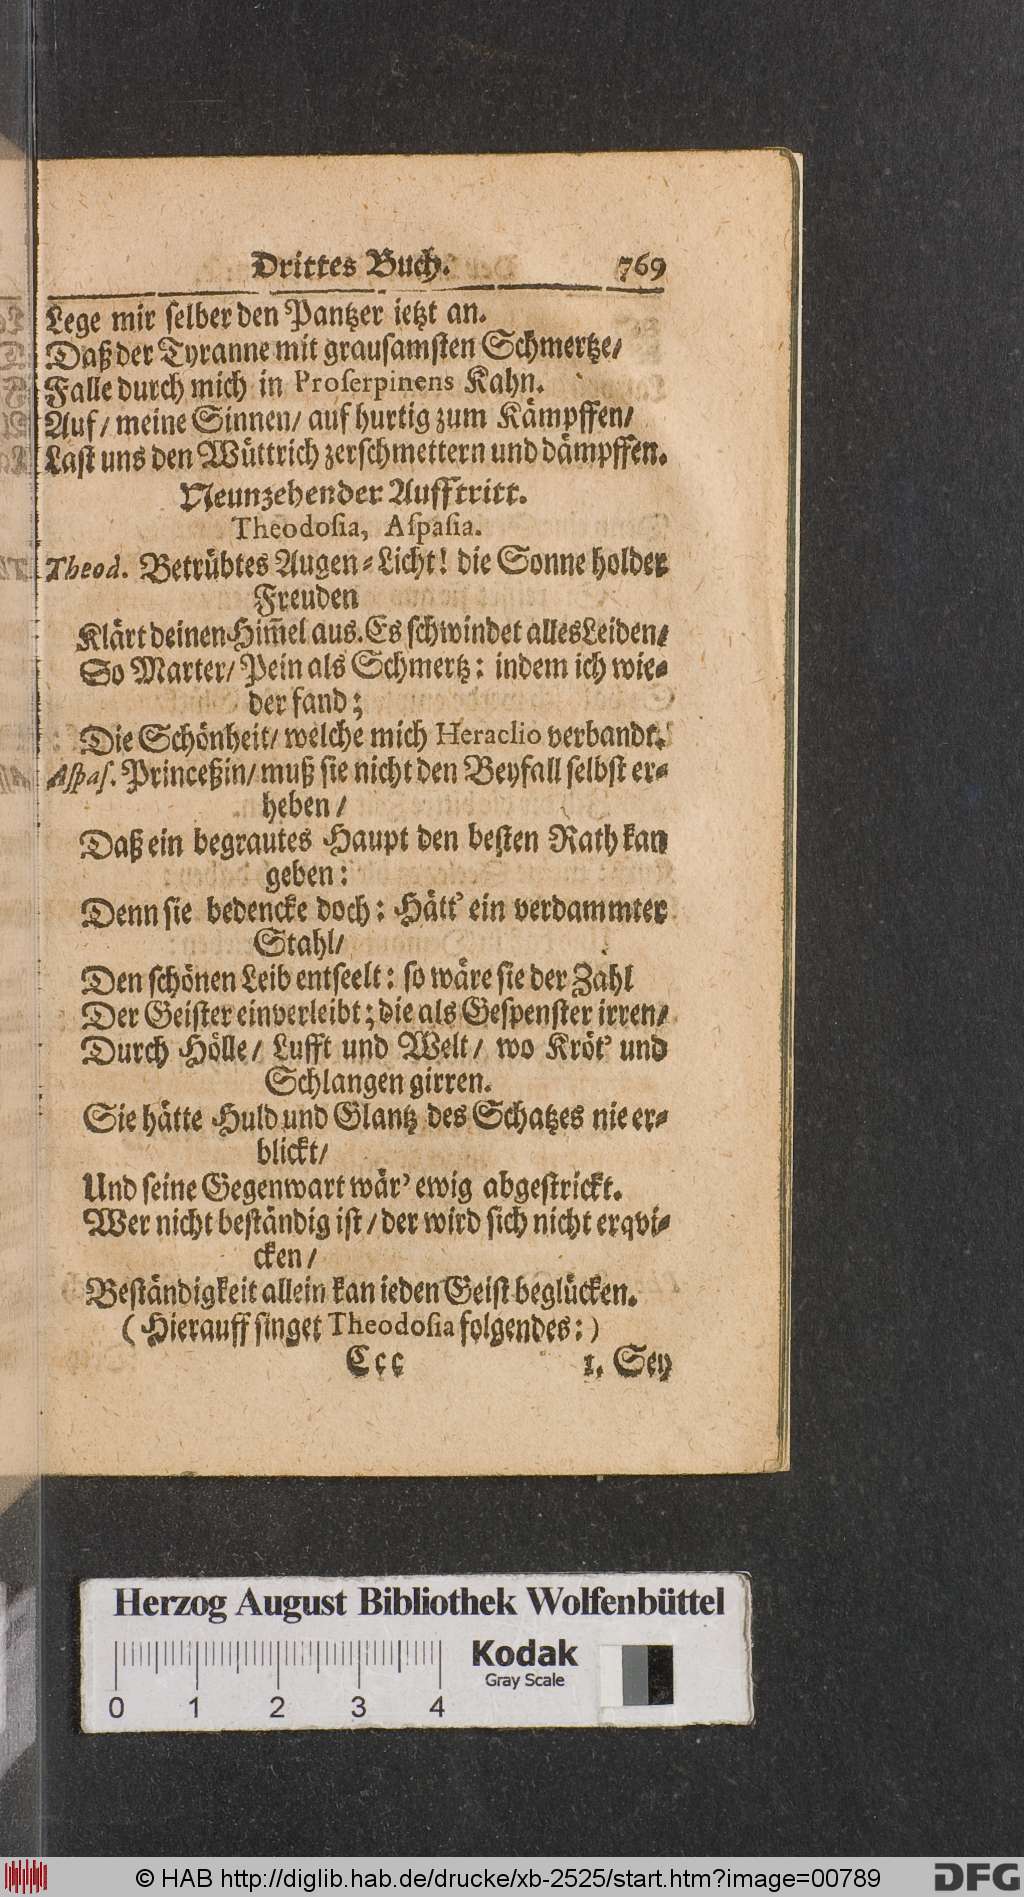 Drittes Buch. 769
Lege mir selber den Pantzer ietzt an.
Daß der Tyranne mit grausamsten Schmertze/
Falle durch mich in Proſerpinens Kahn.
Auf/ meine Sinnen/ auf hurtig zum Kämpffen/
Last uns den Wüttrich zerschmettern und dämpffen.
Neunzehender Aufftritt.
Theodoſia, Aſpaſia.
Theod. Betrübtes Augen-Licht! die Sonne holder
Freuden
Klärt deinen Him̃el aus. Es schwindet alles Leiden/
So Marter/ Pein als Schmertz: indem ich wie-
der fand;
Die Schönheit/ welche mich Heraclio verbandt.
Aſpaſ. Princeßin/ muß sie nicht den Beyfall selbst er-
heben/
Daß ein begrautes Haupt den besten Rath kan
geben:
Denn sie bedencke doch: Hätt' ein verdammter
Stahl/
Den schönen Leib entseelt: so wäre sie der Zahl
Der Geister einverleibt; die als Gespenster irren/
Durch Hölle/ Lufft und Welt/ wo Kröt' und
Schlangen girren.
Sie hätte Huld und Glantz des Schatzes nie er-
blickt/
Und seine Gegenwart wär' ewig abgestrickt.
Wer nicht beständig ist/ der wird sich nicht erqvi-
cken/
Beständigkeit allein kan ieden Geist beglücken.
(Hierauff singet Theodoſia folgendes:)
Ccc 1. Sey
Herzog August Bibliothek Wolfenbüttel
Kodak
Gray Scale
0 1 2 3 4
© HAB http://diglib.hab.de/drucke/xb-2525/start.htm?image=00789
DFG